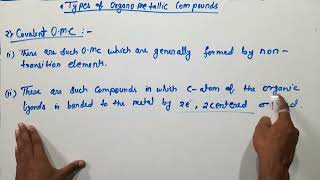 • Types of Organometallic Compounds
2) Covalent O.M.C :-
(i) These are such O.M.C which are generally formed by non-
transition elements.
(ii) These are such compounds in which C-atom of the organic
ligands is bonded to the metal by 2e⁻, 2centered